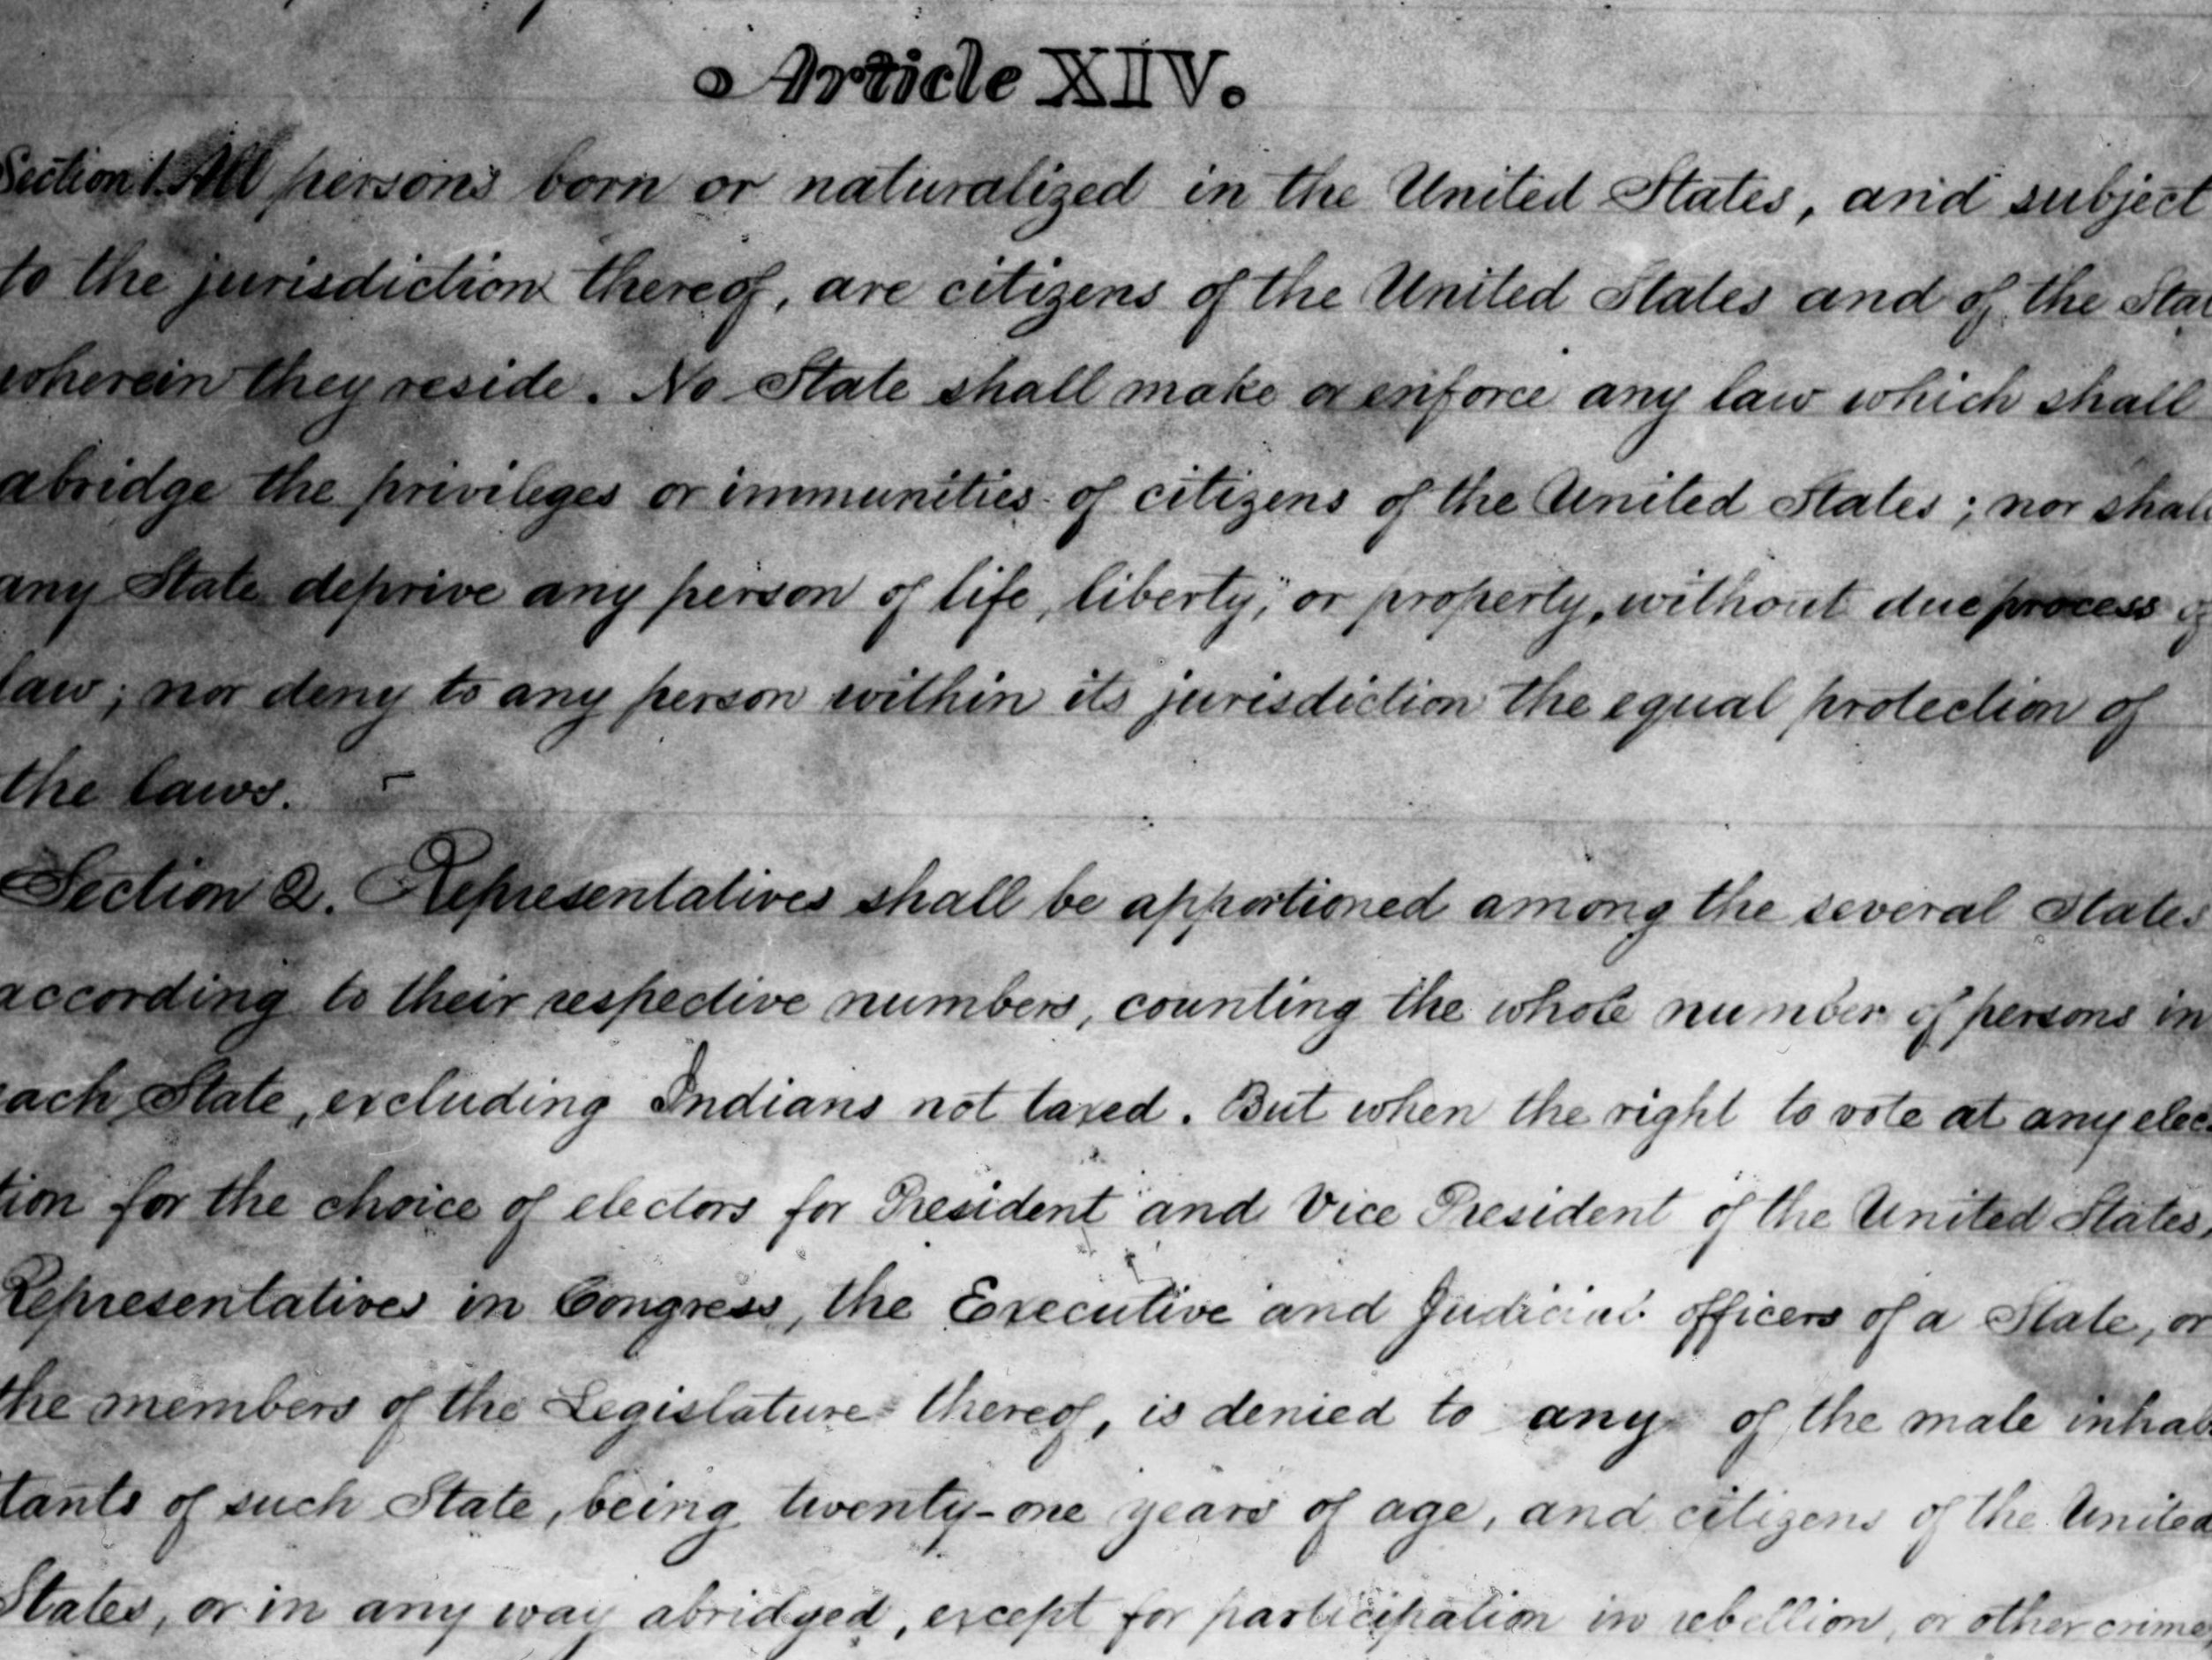 Article XIV.
Section 1. All persons born or naturalized in the United States, and subject
to the jurisdiction thereof, are citizens of the United States and of the Sta
wherein they reside. No State shall make or enforce any law which shall
abridge the privileges or immunities of citizens of the United States; nor shall
any State deprive any person of life, liberty, or property, without due process of
law; nor deny to any person within its jurisdiction the equal protection of
the laws.
Section 2. Representatives shall be apportioned among the several States
according to their respective numbers, counting the whole number of persons in
each State, excluding Indians not taxed. But when the right to vote at any elec-
tion for the choice of electors for President and Vice President of the United States,
Representatives in Congress, the Executive and Judicial officers of a State, or
the members of the Legislature thereof, is denied to any of the male inhab
tants of such State, being twenty-one years of age, and citizens of the United
States, or in any way abridged, except for participation in rebellion, or other crime,